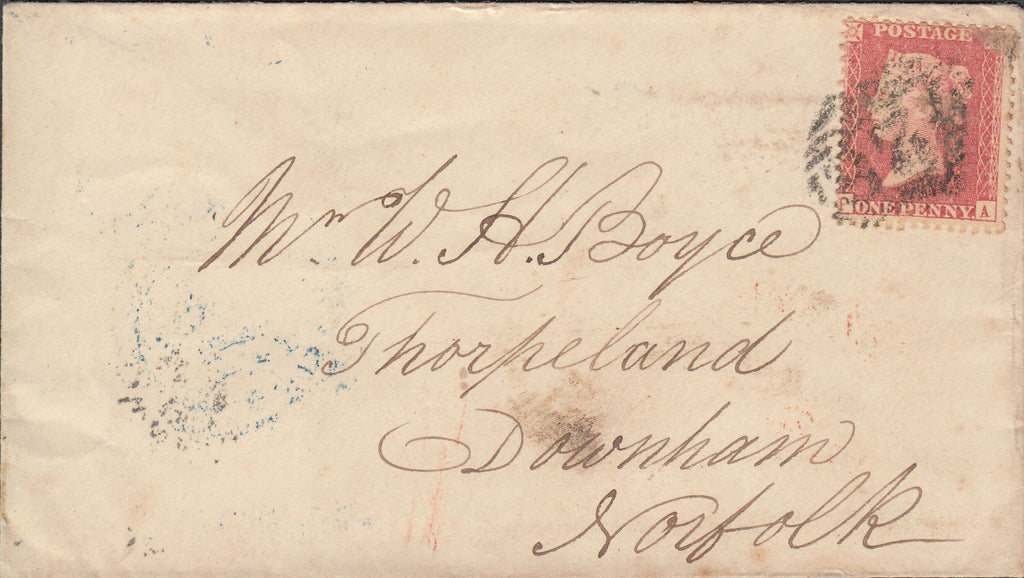 POSTAGE
ONE PENNY A
Mr. W. H. Boyce
Thorpeland
Downham
Norfolk